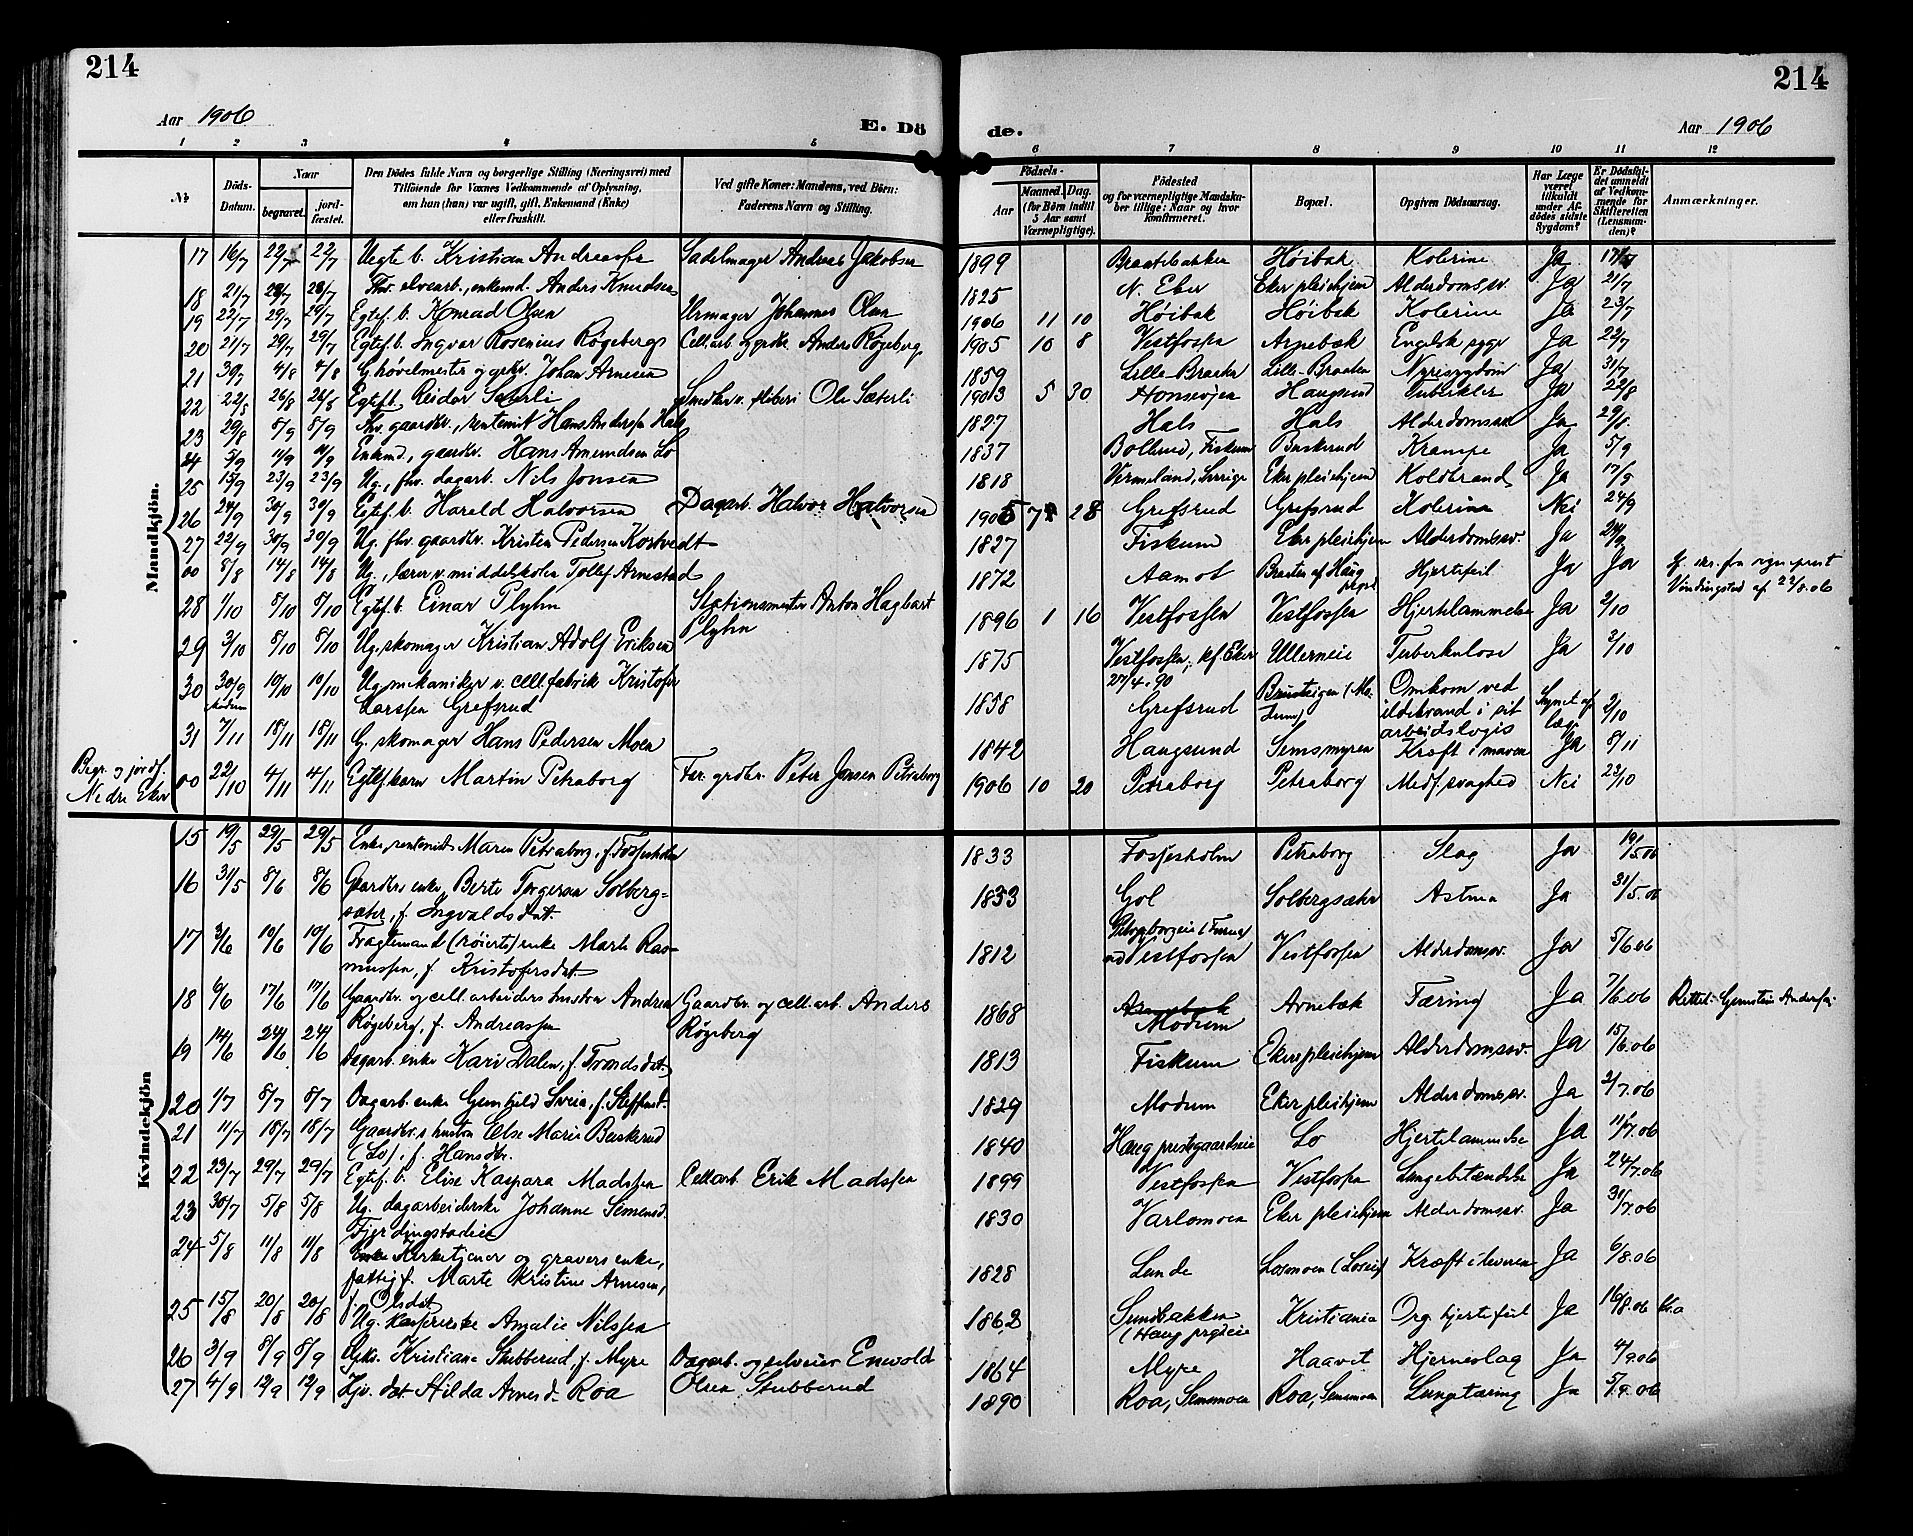 214
214
Aar 1906
E. Dö
de.
Aar 1906
1 2 3 4 5 6 7 8 9 10 11 12
No
Döds-Datum.
Naar
begravet.
jordfæstet.
Den Dödes fulde Navn og borgerlige Stilling (Næringsvei) med
Tilföiende for Voxnes Vedkommende af Oplysning,
om hun (han) var ugift, gift, Enkemand (Enke)
eller fraskilt.
Ved gifte Koner: Mandens, ved Börn:
Faderens Navn og Stilling.
Födsels-
Aar
Maaned.
Dag.
(for Börn indtil
5 Aar samt
Værnepligtige).
Födested
og for værnepligtige Mandskaber tillige: Naar og hvor
konfirmeret.
Bopæl.
Opgiven Dödsaarsag.
Har Læge
været
tilkaldt
under Afdödes sidste
Sygdom?
Er Dödsfaldet anmeldt
af Vedkommende for
Skifteretten
(Lensmanden)?
Anmærkninger.
Mandkjön.
17 16/7 22/7 22/7 Uegte b. Kristian Andreassen Sadelmager Andreas Jakobsen 1899 Braatebakken Høibak Kolerine Ja 17/7
18 21/7 28/7 28/7 Fhv. elvearb., enkemd. Anders Knudsen 1825 N. Eker Eker pleiehjem Alderdomssv. Ja 21/7
19 22/7 29/7 29/7 Egtef. b. Konrad Olsen Urmager Johannes Olsen 1906 11 10 Høibak Høibak Kolerine Ja 23/7
20 21/7 29/7 29/7 Egtef. b. Ingvar Rosenius Røgeberg Cell.arb. og grdbr. Anders Røgeberg 1905 10 8 Vestfossen Arnebæk Engelsk syge Ja 22/7
21 30/7 4/8 4/8 G. høvelmester og grdbr. Johan Arnesen 1859 Lille-Braaten Lille-Braaten Nyresygdom Ja 31/7
22 22/8 26/8 26/8 Egtef. b. Reidar Sæterli Smedksv. v. sliberi Ole Sæterli 1903 5 30 Haugsund Tuberkler Ja 22/8
23 29/8 5/9 5/9 Fhv. gaardbr., rentenist Hans Anderssen Hals 1827 Hals Hals Alderdomssv. Ja 29/8
24 5/9 11/9 11/9 Enkemd., gaardbr. Hans Amundsen Lo 1837 Bollerud, Fiskum Buskerud Krampe Ja 5/9
25 15/9 23/9 23/9 Ug., fhv. dagarb. Nils Jonsen 1818 Vermeland, Sverige Eker pleiehjem Koldbrand Ja 17/9
26 24/9 30/9 30/9 Egtef. b. Harald Halvorsen Dagarb. Halvor Halvorsen 1905 7 28 Grefsrud Grefsrud Kolerine Nei 24/9
27 22/9 30/9 30/9 Ug. fhv. gaardbr. Kristen Pedersen Kostvedt 1827 Fiskum Eker pleiehjem Alderdomssv. Ja 24/9
00 8/8 14/8 14/8 Ug., lærer v. middelskolen Tollef Arnestad 1872 Aamot Braaten af Haug prgrd. Hjertefeil Ja Ja Vindingstad af 22/8.06
28 1/10 8/10 8/10 Egtef. b. Einar Plyhn Stationsmester Anton Hagbart
Plyhn 1896 1 16 Vestfossen Vestfossen Hjertelammelse Ja 2/10
29 3/10 8/10 8/10 Ug. skomager Kristian Adolf Eriksen 1875 Vestfossen, kf. Eker
27/4.90 Ullerneie Tuberkulose Ja 2/10
30 30/9 10/10 10/10 Ug. mekaniker v. cell.fabrik Kristofer
Larssen Grefsrud 1858 Grefsrud Omkom ved
ildebrand i sit
arbeidslogis Synet af læge 2/10
31 7/11 18/11 18/11 G. skomager Hans Pedersen Moen 1842 Haugsund Semsmyren Kræft i maven Ja 8/11
Begr. og jordf.
Nedre Eker
00 22/10 4/11 4/11 Egtef. barn Martin Petraborg Far: grdbr. Peter Jensen Petraborg 1906 10 20 Petraborg Petraborg Medf. svaghed Nei 23/10
Kvindekjön
15 19/5 29/5 29/5 Enke, rentenist Maren Petraborg, f. Fossesholm 1833 Fossesholm Petraborg Slag Ja 19/5.06
16 31/5 8/6 8/6 Gaardbr. enke Berte Torgersen Solberg-
sæter, f. Ingvaldsdat. 1833 Gol Solbergsæter Astma Ja 31/5.06
17 3/6 10/6 10/6 Fragtemand (røierts) enke Marte Ras-
mussen, f. Kristofersdat. 1812 ved Vestfossen Vestfossen Alderdomssv. Ja 5/6.06
18 6/6 17/6 17/6 Gaardbr. og cell.arbeiders hustru Andrea
Røgeberg, f. Andreassen Gaardbr. og cell.arb. Anders
Røgeberg 1868 Arnebæk
Modum Arnebæk Tæring Ja 7/6.06 Rettet:
19 14/6 24/6 24/6 Dagarb. enke Kari Dalen, f. Trondsdat. 1813 Fiskum Eker pleiehjem Alderdomssv. Ja 15/6.06
20 1/7 8/7 8/7 Dagarb. enke Gunhild Sveia, f. Steffensd. 1829 Modum Eker pleiehjem Alderdomssv. Ja 2/7.06
21 11/7 18/7 18/7 Gaardbr.s hustru Else Marie Buskerud
(Lo), f. Hansdtr. 1840 Haug prestegaardseie Lo Hjertelammelse Ja 11/7.06
22 23/7 29/7 29/7 Egtef. b. Elise Kaspara Madssen Cellarb. Erik Madssen 1899 Vestfossen Vestfossen Lungebetændelse Ja 24/7.06
23 30/7 5/8 5/8 Ug. dagarbeiderske Johanne Simensd.
Fjerdingstadeie 1830 Varlomoen Eker pleiehjem Alderdomssv. Ja 31/7.06
24 5/8 11/8 11/8 Enke Kirketjener og gravers enke,
fattig f. Marte Kristine Arnesen,
f. Olsdat. 1828 Lunde Losmoen (Loseie) Kræft i leveren Ja 6/8.06
25 15/8 20/8 20/8 Ug. Amalie Nilssen 1862 Sundbakken
(Haug prgdeie Kristiania Org. hjertefeil Ja 16/8.06
26 3/9 8/9 8/9 Kristiane Stubberud, f. Myre Dagarb. og selveier Enevold
Olsen Stubberud 1864 Myre Haavet Hjerneslag Ja 4/9.06
27 4/9 12/9 12/9 Hjv. dat. Hilda Arnesd. Roa 1890 Roa, Semsmoen Roa, Semsmoen Lungetæring Ja 5/9.06